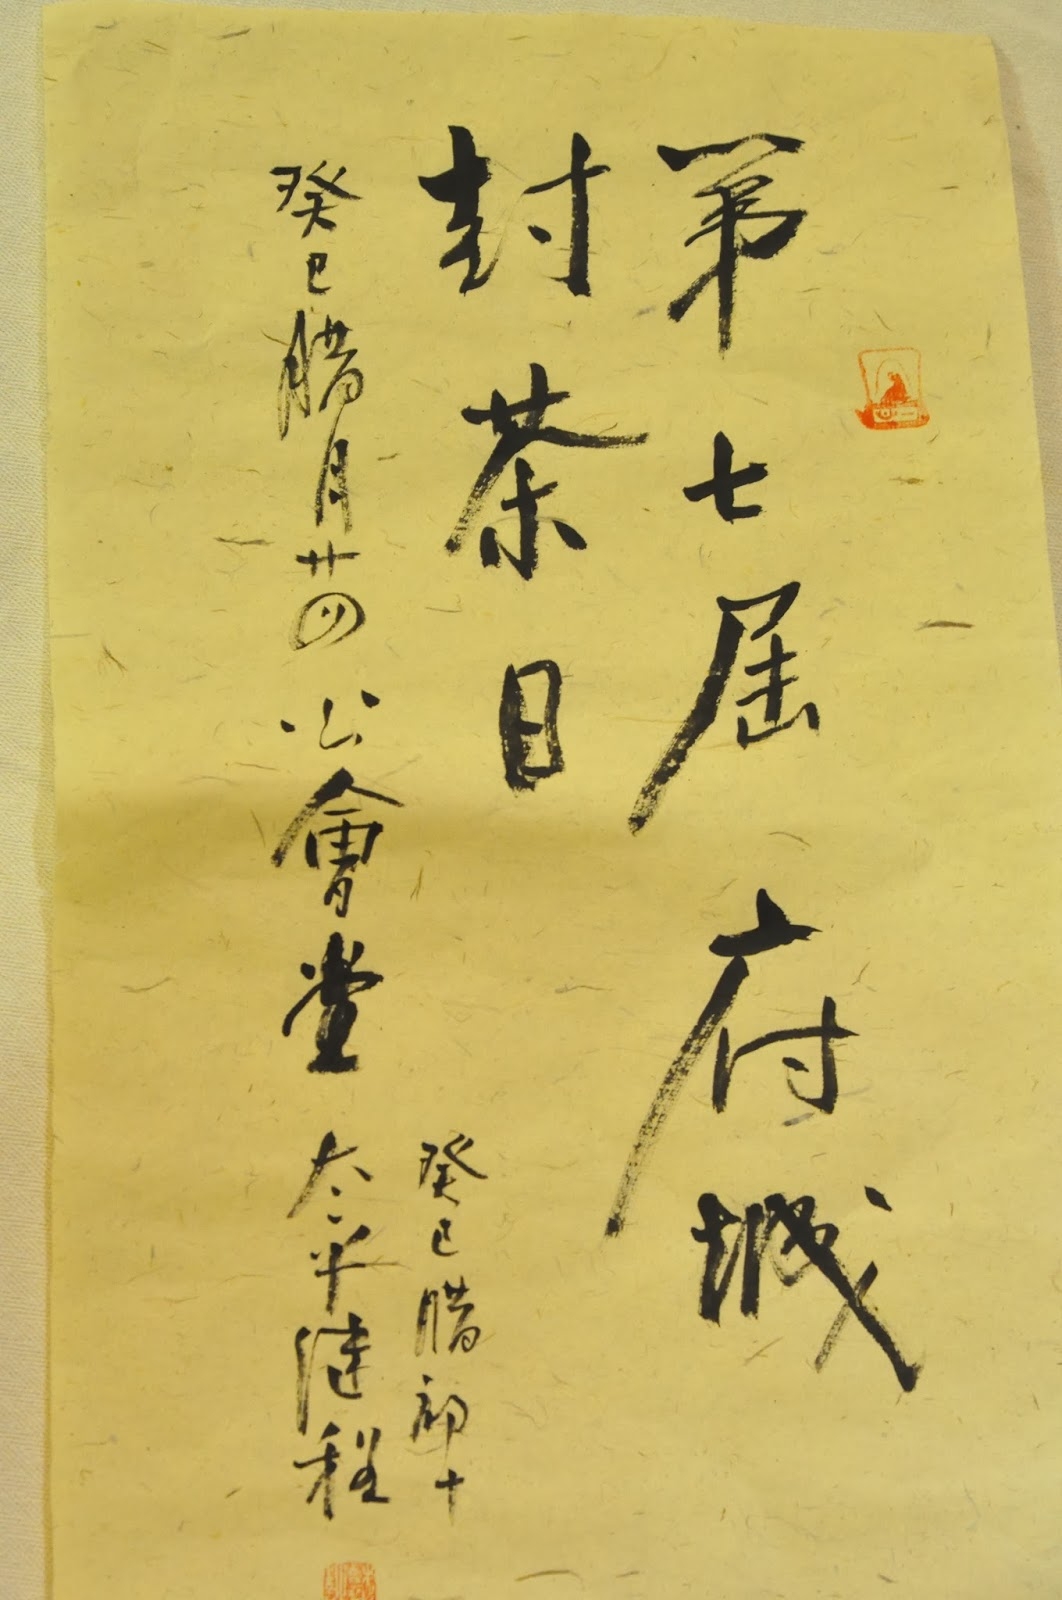 第七届府城
封茶日
癸巳腊月廿四 公會堂
癸巳腊初十
太平继程